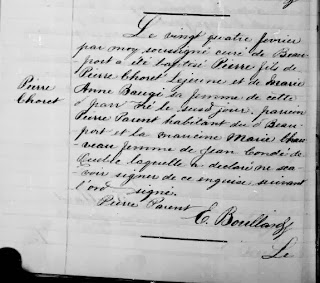 Pierre
Choret
Le vingt quatre fevrier
par moy soussigné curé de Beau
port a été baptisé Pierre fils de
Pierre Choret Lejeune et de Marie
Anne Baugi sa femme de cette
parr né le susd jour, parrein
Pierre Parent habitant dud Beau
port et la marreine Marie Chau
reau femme de Jean Condé de
Quebec laquelle a declaré ne sca
voir signer de ce enquise, suivant
l'ord signé.
Pierre Parent
E. Boullard
Le